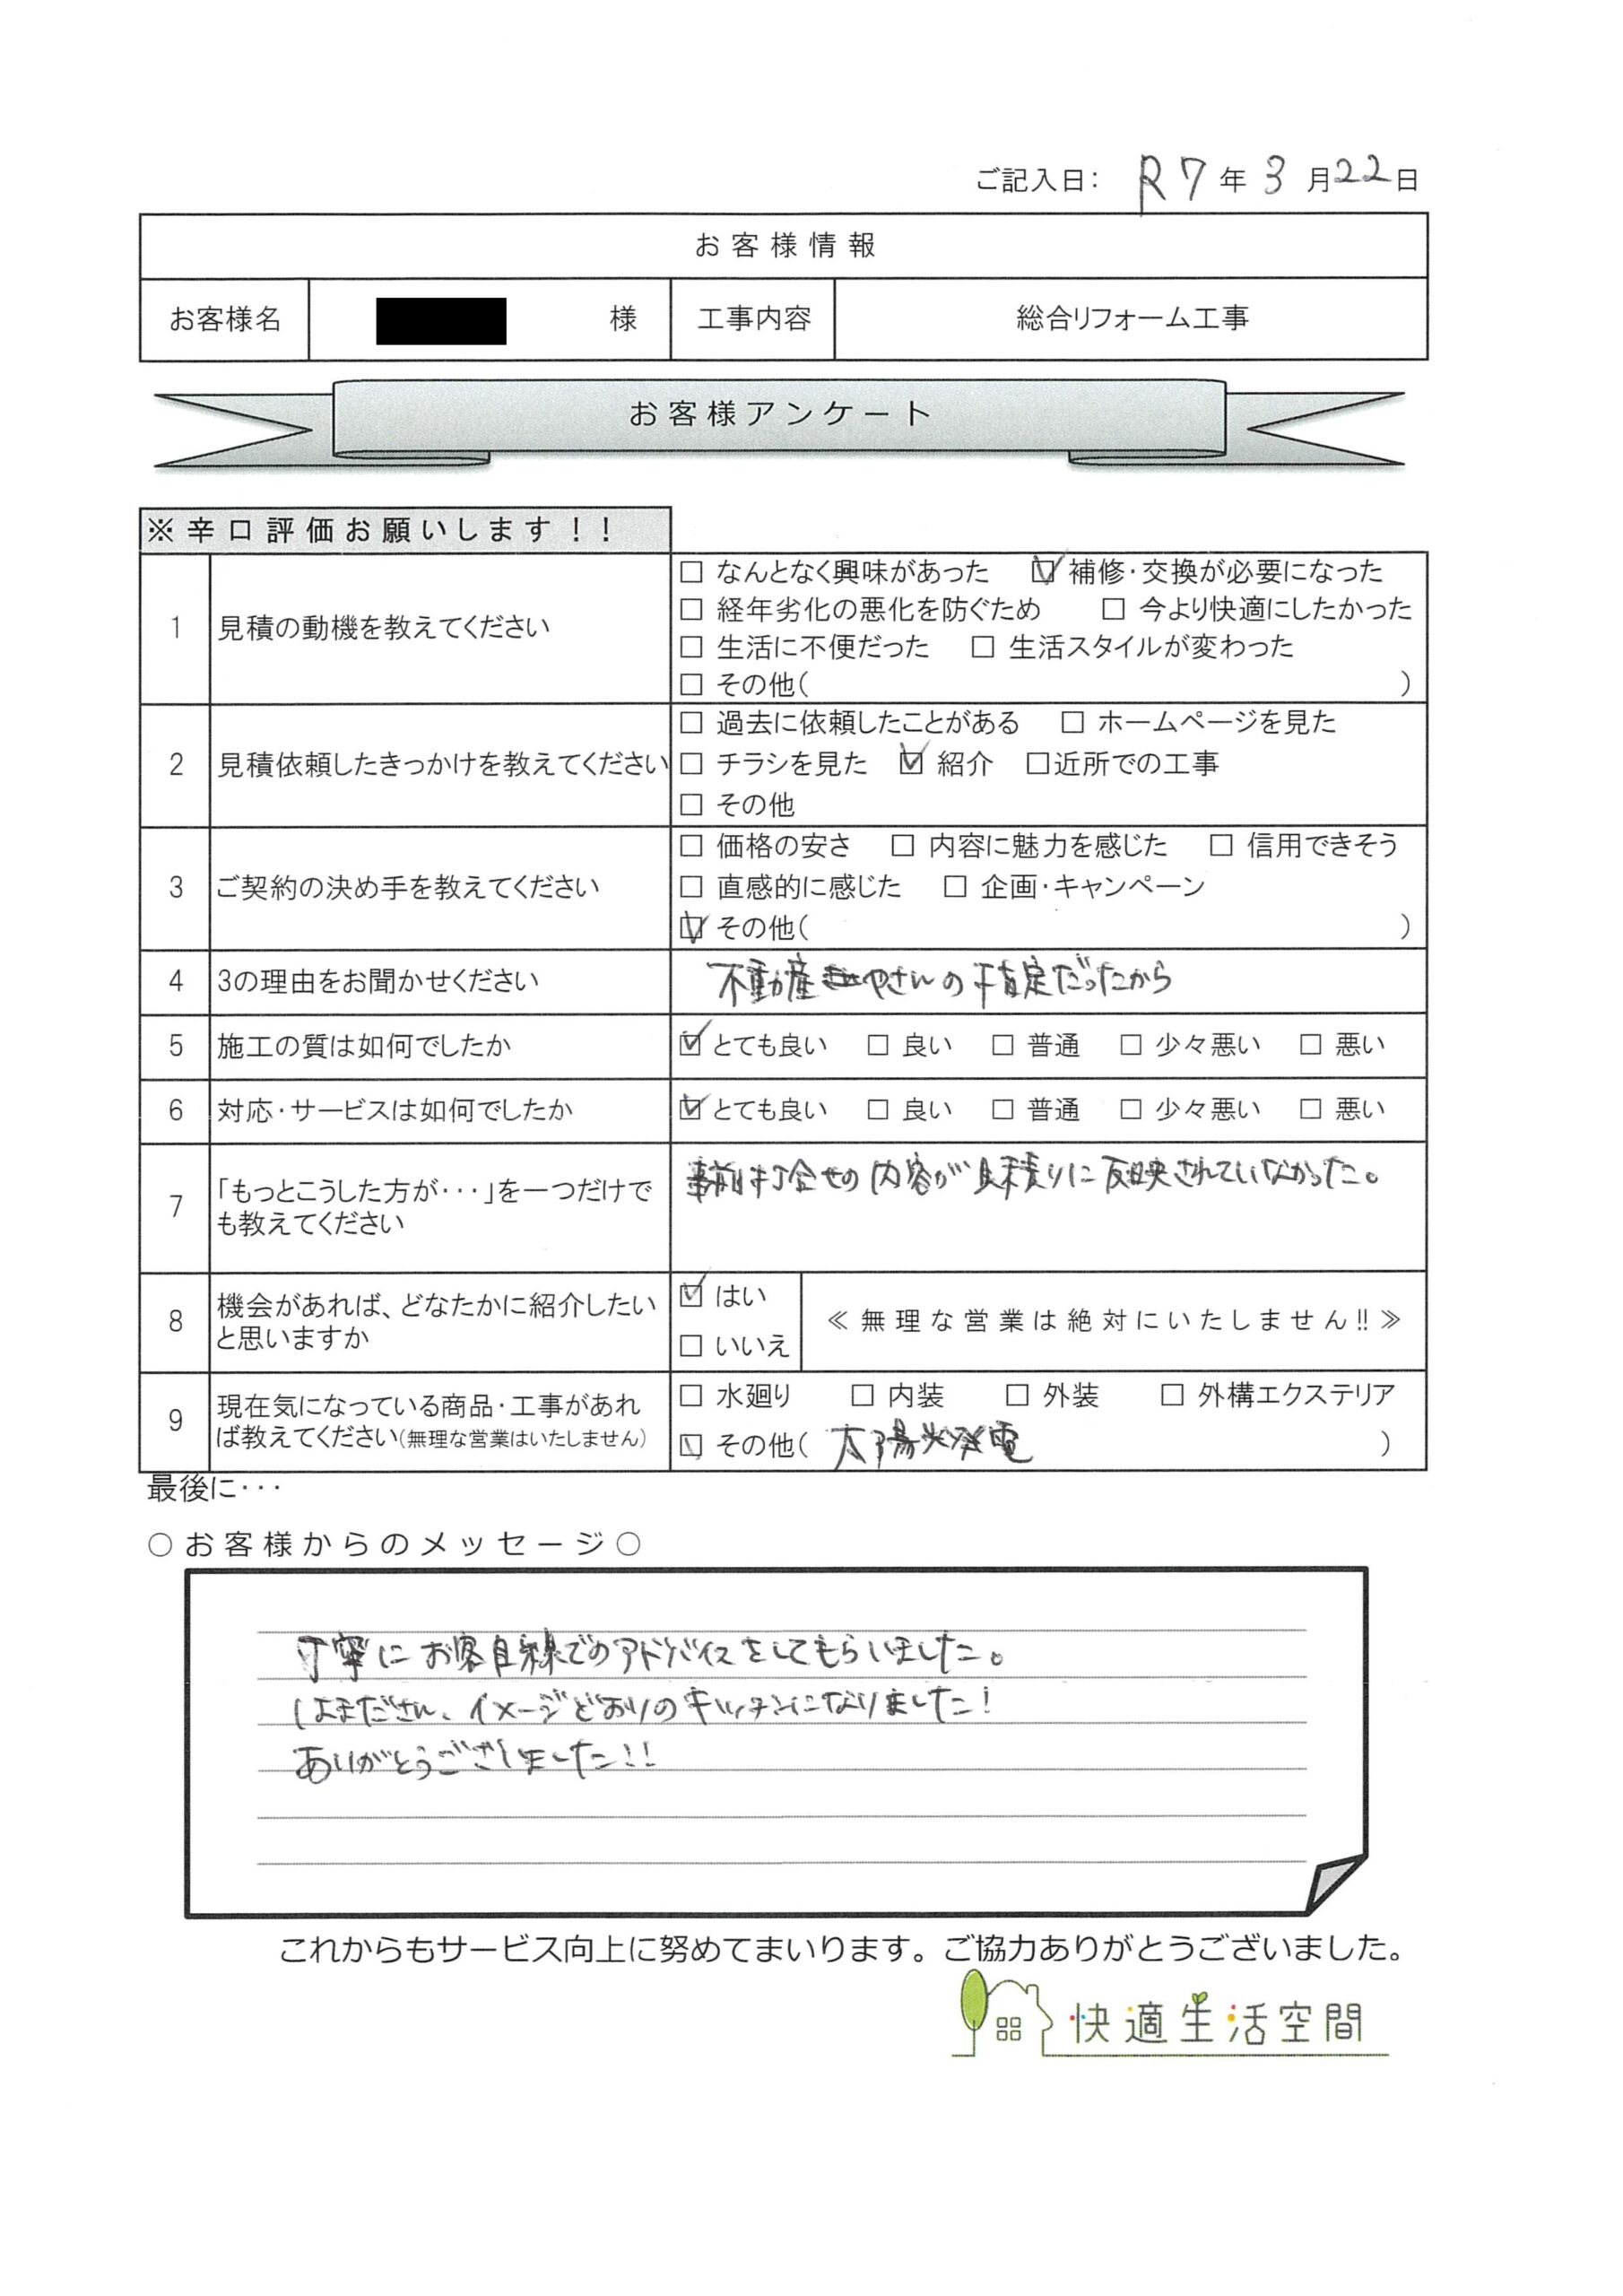 ご記入日： R7年3月22日
お客様情報
お客様名 様 工事内容 総合リフォーム工事
お客様アンケート
※辛口評価お願いします！！
1 見積の動機を教えてください
□ なんとなく興味があった ☑ 補修・交換が必要になった
□ 経年劣化の悪化を防ぐため □ 今より快適にしたかった
□ 生活に不便だった □ 生活スタイルが変わった
□ その他（ ）
2 見積依頼したきっかけを教えてください
□ 過去に依頼したことがある □ ホームページを見た
□ チラシを見た ☑ 紹介 □近所での工事
□ その他
3 ご契約の決め手を教えてください
□ 価格の安さ □ 内容に魅力を感じた □ 信用できそう
□ 直感的に感じた □ 企画・キャンペーン
☑ その他（ ）
4 3の理由をお聞かせください 不動産やさんの指定だったから
5 施工の質は如何でしたか ☑ とても良い □ 良い □ 普通 □ 少々悪い □ 悪い
6 対応・サービスは如何でしたか ☑ とても良い □ 良い □ 普通 □ 少々悪い □ 悪い
7 「もっとこうした方が・・・」を一つだけで
も教えてください
事前打合せの内容が見積りに反映されていなかった。
8 機会があれば、どなたかに紹介したい
と思いますか
☑ はい
□ いいえ
≪無理な営業は絶対にいたしません!!≫
9 現在気になっている商品・工事があれ
ば教えてください（無理な営業はいたしません）
□ 水廻り □ 内装 □ 外装 □ 外構エクステリア
☑ その他（ 太陽光発電 ）
最後に・・・
○お客様からのメッセージ○
丁寧にお客目線でのアドバイスをしてもらいました。
はまださん、イメージどおりのキッチンになりました！
ありがとうございました！！
これからもサービス向上に努めてまいります。ご協力ありがとうございました。
快適生活空間